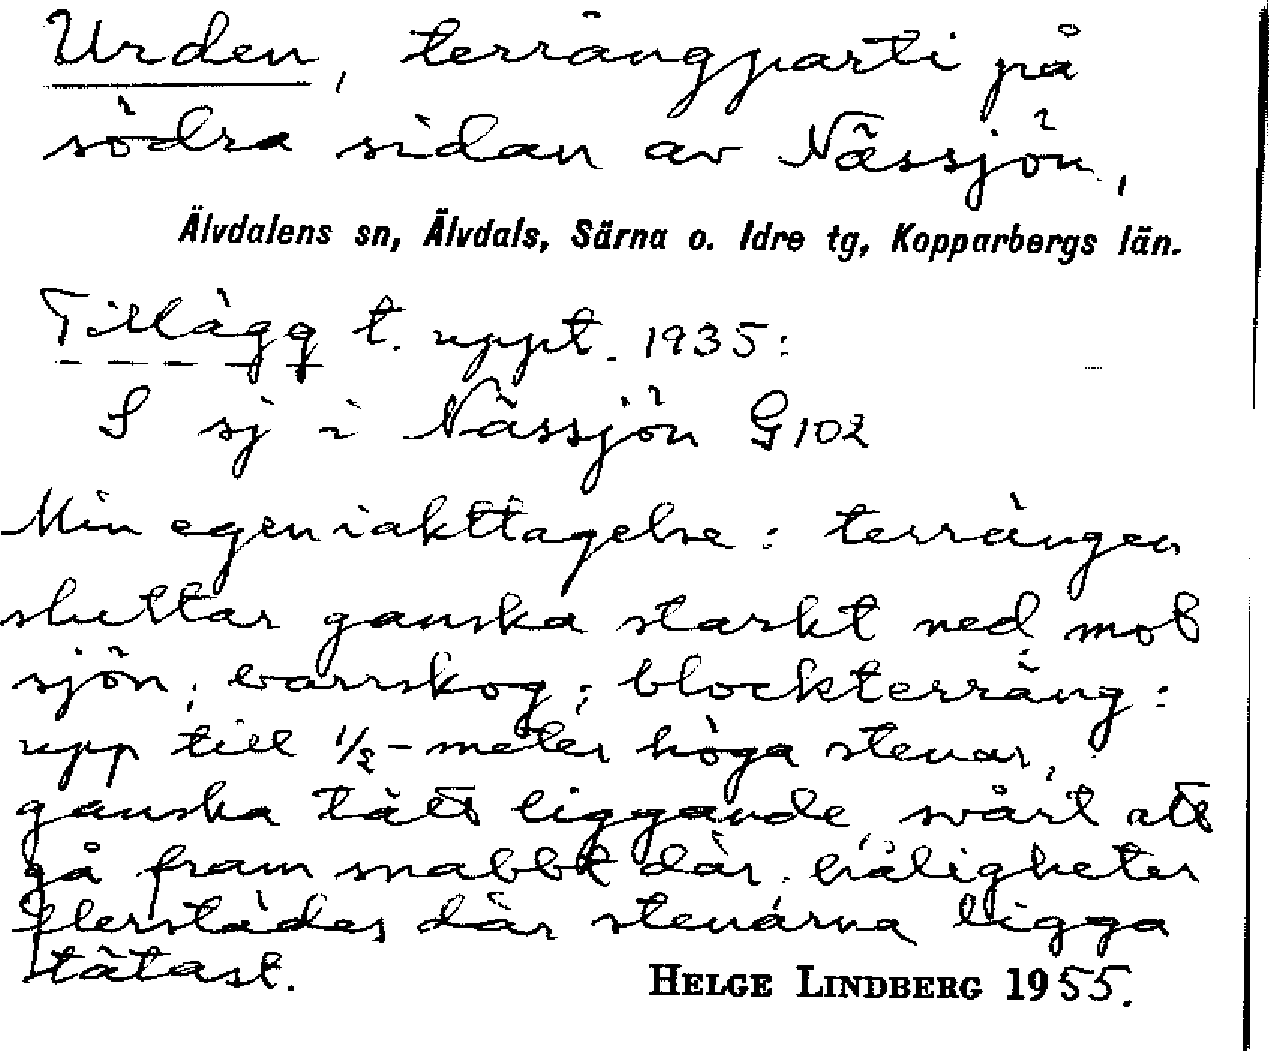 Urden, terrängparti på
södra sidan av Nässjön,
Älvdalens sn, Älvdals, Särna o. Idre tg, Kopparbergs län.
Tillägg t. uppt. 1935:
S sj i Nässjön G 102
Min egen iakttagelse: terrängen
sluttar ganska starkt ned mot
sjön; barrskog; blockterräng:
upp till 1/2-meter höga stenar,
ganska tätt liggande, svårt att
gå fram snabbt där. håligheter
flerstädes där stenarna ligga
tätast.
HELGE LINDBERG 1955.